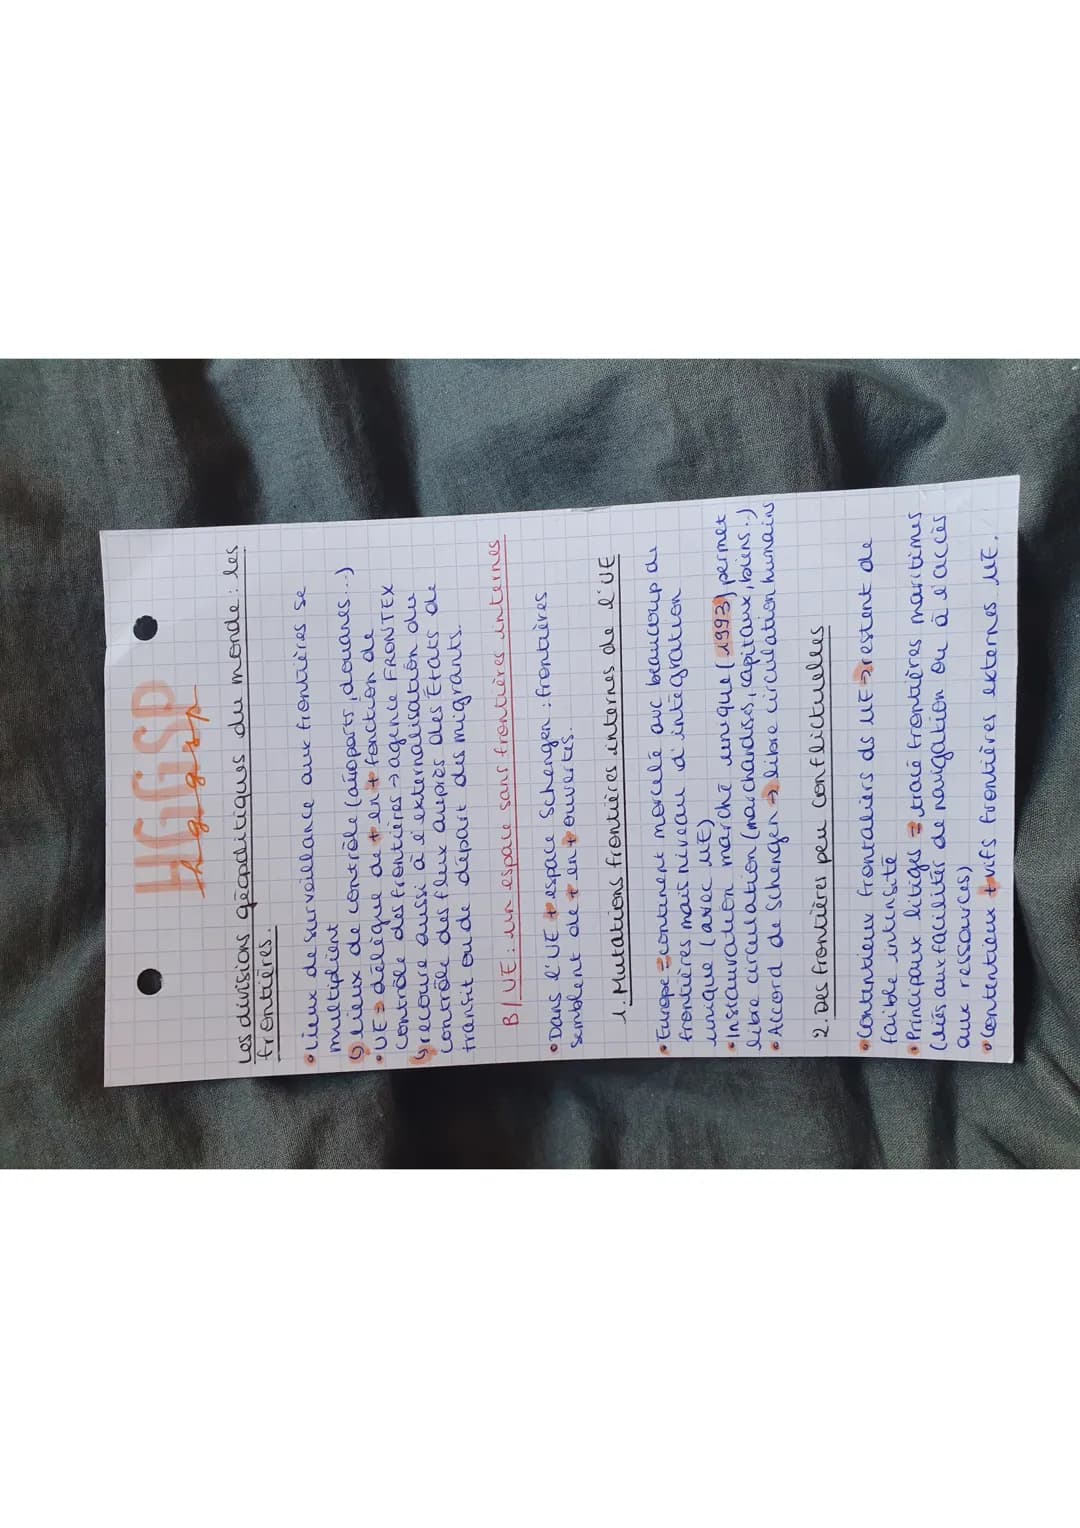 HGGSP
hggsp
Les divisions géopolitiques du monde : les
frontières.
• Lieux de surveillance aux frontières se
multiplient
↳ lieux de contrôle (aéroports, douanes...)
• UE → délègue de + en + fonction de
contrôle des frontières → agence FRONTEX
↳ recoure aussi à l'externalisation du
contrôle des flux auprès des États de
transit ou de départ des migrants.
B/ UE : un espace sans frontières internes
• Dans l'UE + espace Schengen : frontières
semblent de + en + ouvertes.
1. Mutations frontières internes de l'UE
• Europe = continent morcelé avc beaucoup de
frontières mais niveau d'intégration
unique (avec UE)
• Instauration marché unique (1993) permet
libre circulation (marchandises, capitaux, biens..)
• Accord de Schengen → libre circulation humains
2. Des frontières peu conflictuelles
• Contentieux frontaliers ds UE → restent de
faible intensité
• Principaux litiges → tracé frontières maritimes
(liés aux facilités de navigation ou à l'accès
aux ressources)
• Contentieux + vifs frontières externes UE.